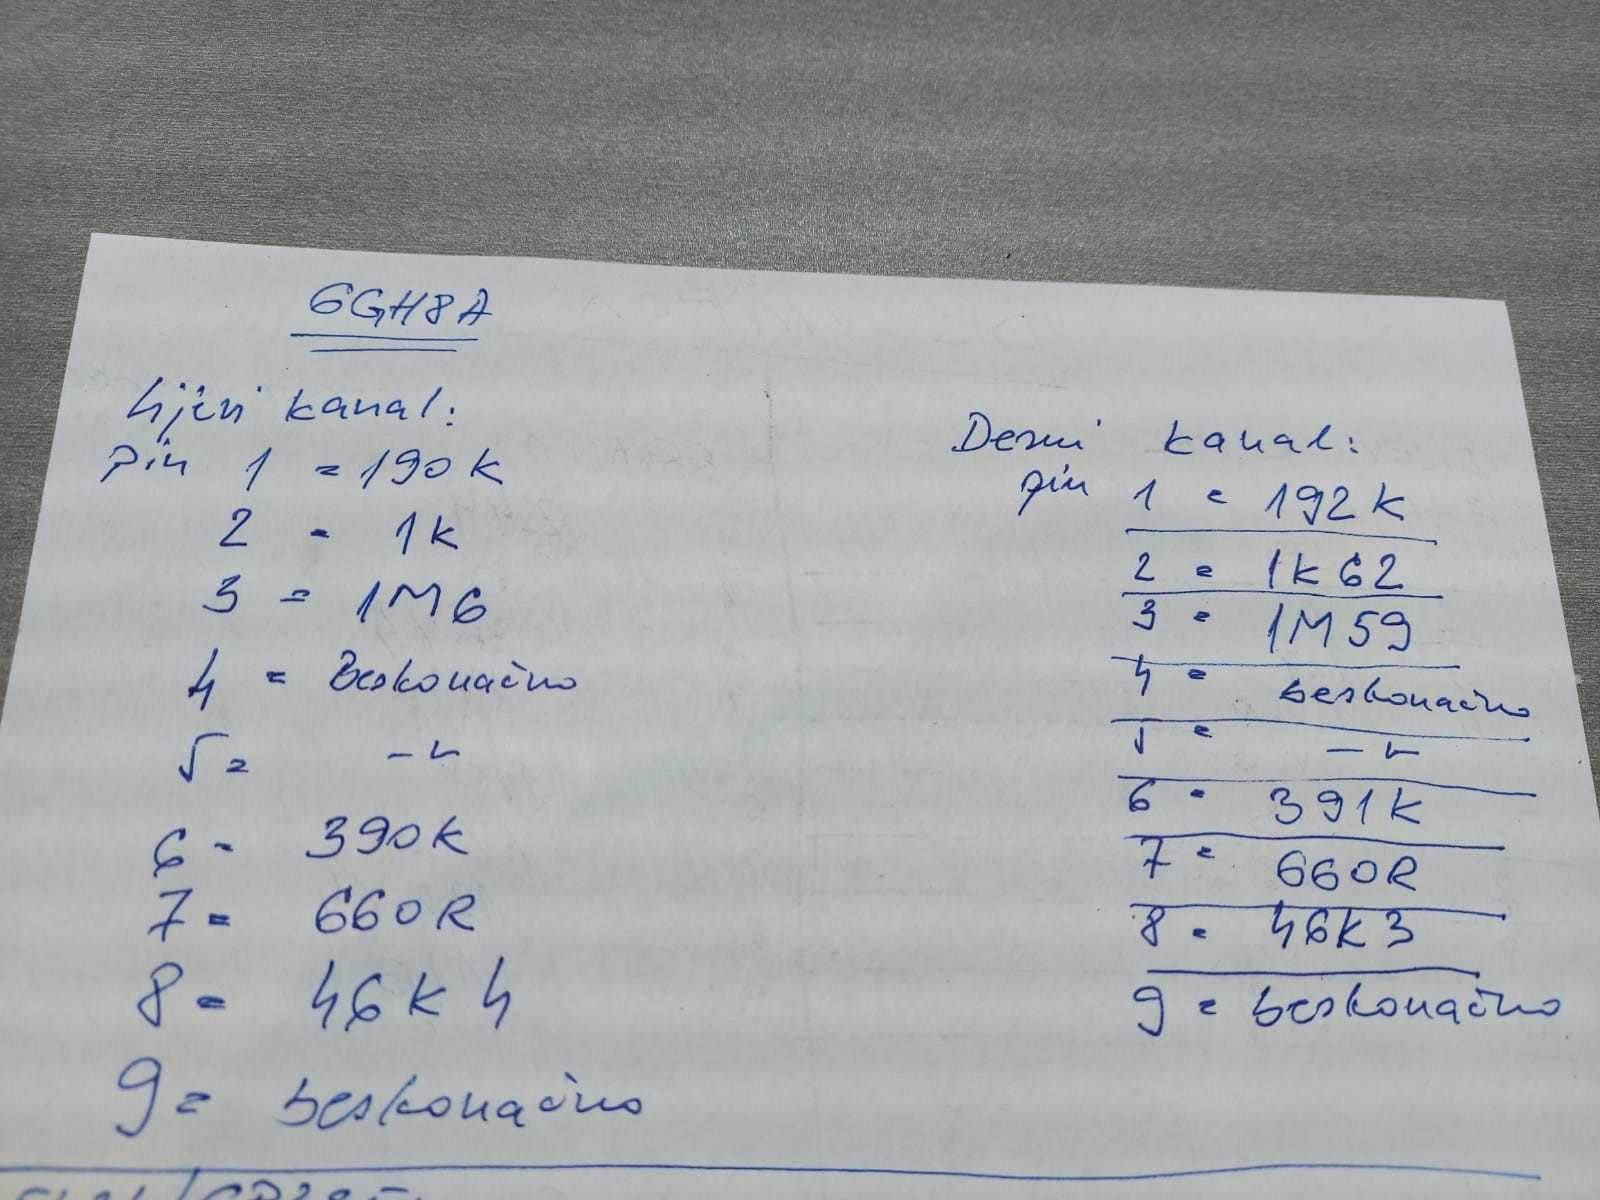 6GH8A
Lijevi kanal:
pin 1 = 190K
2 = 1K
3 = 1M6
4 = Beskonačno
5 = -"-
6 = 390K
7 = 660R
8 = 46K4
9 = beskonačno
Desni kanal:
pin 1 = 192K
2 = 1K62
3 = 1M59
4 = beskonačno
5 = -"-
6 = 391K
7 = 660R
8 = 46K3
9 = beskonačno